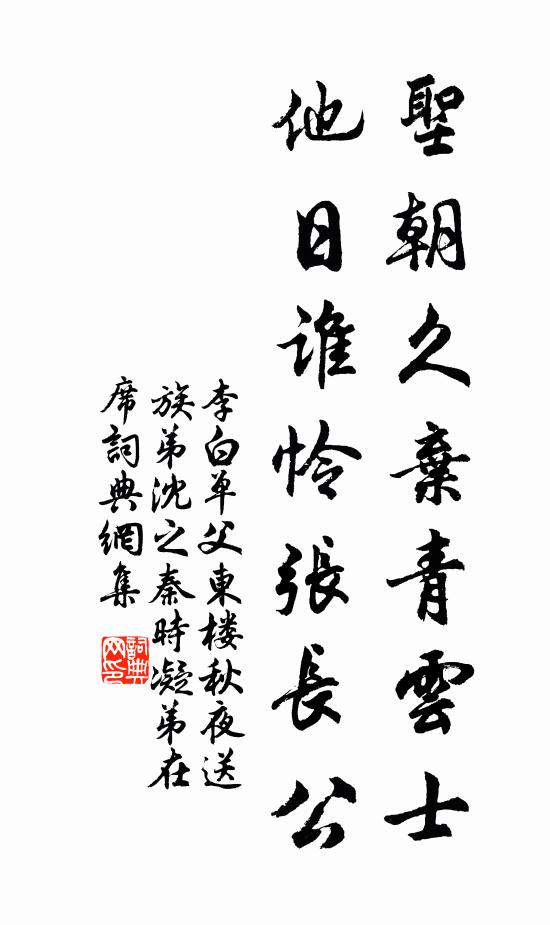 聖朝久棄青雲士
他日誰怜張長公
李白单父東楼秋夜送
族弟沈之秦時凝弟在
席詞典網集
詞典
网印